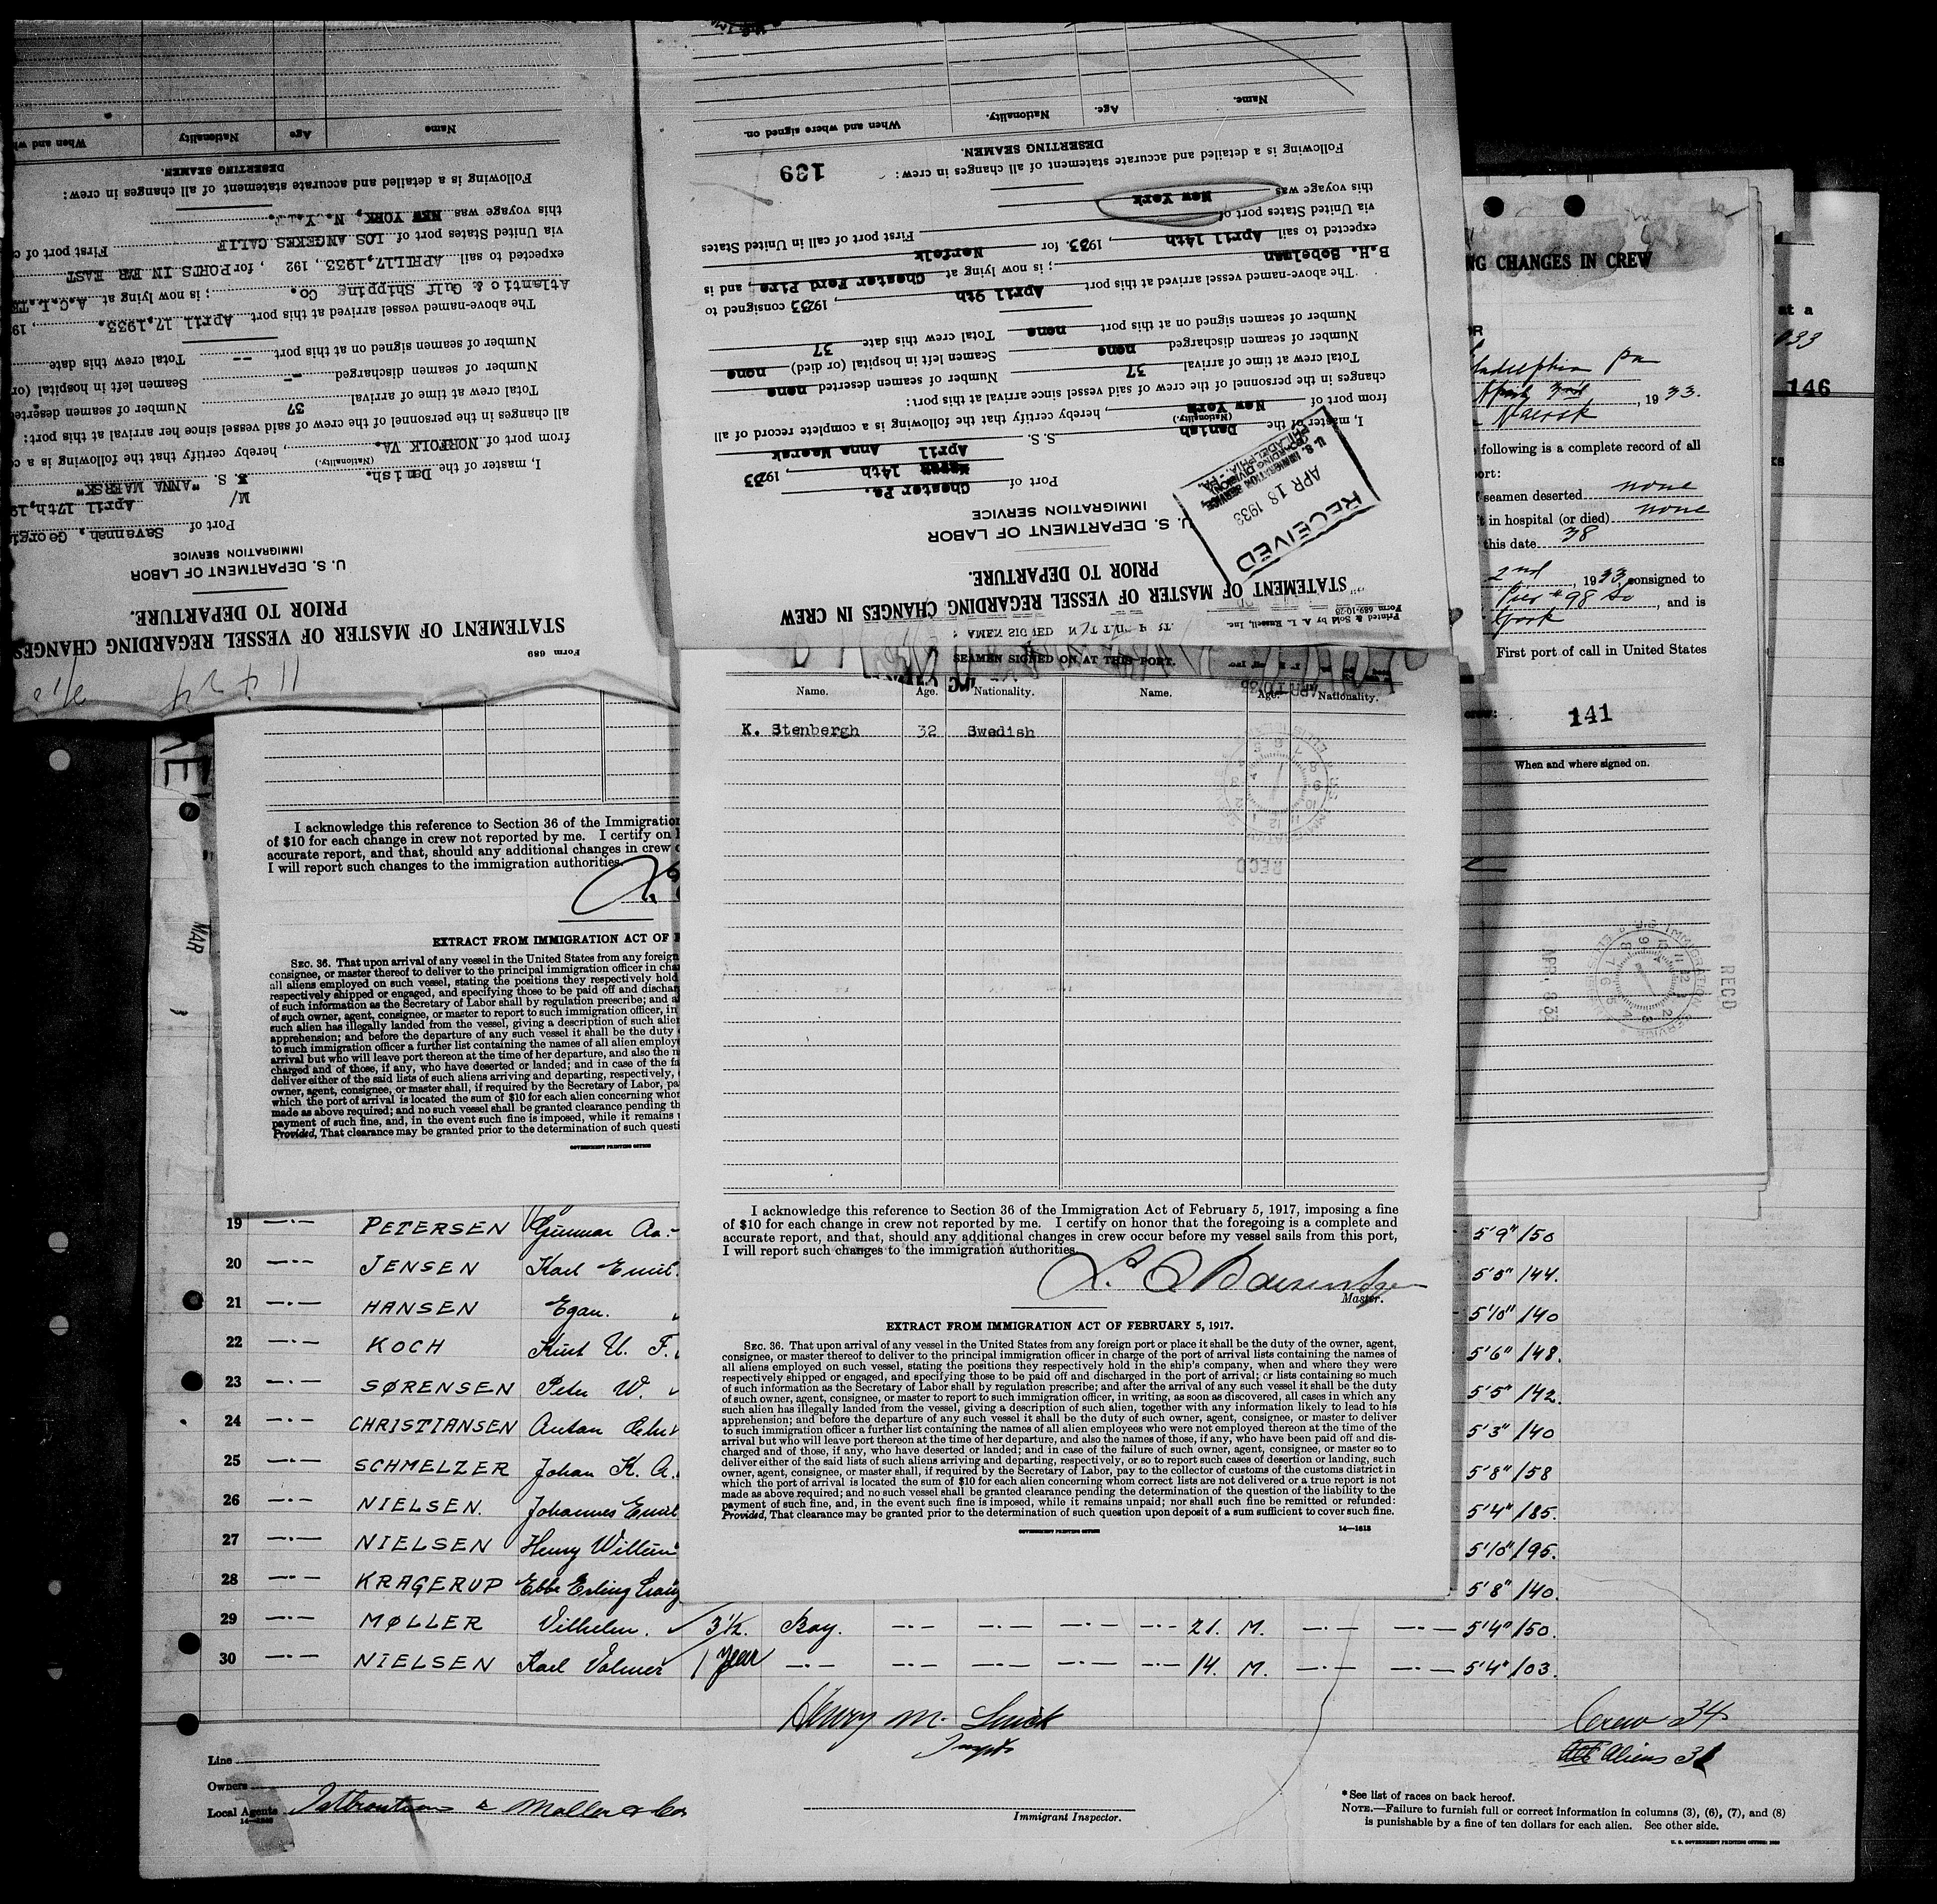 Form 689
STATEMENT OF MASTER OF VESSEL REGARDING CHANGES
PRIOR TO DEPARTURE.
U. S. DEPARTMENT OF LABOR
IMMIGRATION SERVICE
Port of Savannah, Georgi
April 17th, 19
I, master of the Danish. M/ S. "ANNA MAERSK"
(Nationality.)
from port of NORFOLK VA. , hereby certify that the following is a c
all changes in the personnel of the crew of said vessel since her arrival at this port:
Total crew at time of arrival 37 Number of seamen deserted
Number of seamen discharged -- Seamen left in hospital (or
Number of seamen signed on at this port -- Total crew this date
The above-named vessel arrived at this port April 17,1933. , 19
Atlantic & Gulf Shipping Co. ; is now lying at A.C.L. TE
expected to sail APRIL17,1933., 192 , for PORTS IN FAR EAST
via United States port of LOS ANGEKES CALIF First port of c
this voyage was NEW YORK, N.Y.
Following is a detailed and accurate statement of all changes in crew:
DESERTING SEAMEN.
Name Age Nationality When and w
Printed & Sold by A. L. Russell, Inc.
Form 689-10-28
STATEMENT OF MASTER OF VESSEL REGARDING CHANGES IN CREW
PRIOR TO DEPARTURE.
U. S. DEPARTMENT OF LABOR
IMMIGRATION SERVICE
RECEIVED
APR 18 1933
U. S. IMMIGRATION SERVICE,
(BOARDING DIVISION)
PHILADELPHIA, PA.
Port of Chester Pa.
April 14th , 1933
I, master of the Danish S. S. Anna Maersk
(Nationality.)
from port of New York , hereby certify that the following is a complete record of all
changes in the personnel of the crew of said vessel since arrival at this port:
Total crew at time of arrival 37 Number of seamen deserted none
Number of seamen discharged none Seamen left in hospital (or died) none
Number of seamen signed on at this port none Total crew this date 37
The above-named vessel arrived at this port April 9th , 1933 consigned to
B.H. Sobelman ; is now lying at Chester Ford Pire , and is
expected to sail April 14th , 1933. for Norfolk
via United States port of First port of call in United States
this voyage was New York
Following is a detailed and accurate statement of all changes in crew:
139
DESERTING SEAMEN.
Name. Age. Nationality. When and where signed on.
NG CHANGES IN CREW
ladelphia Pa
3rd , 1933.
Maersk
following is a complete record of all
port:
seamen deserted none
in hospital (or died) none
this date 38
2nd , 1933, consigned to
Pier #98 So , and is
York
First port of call in United States
141
When and where signed on.
RECD
at a
146
SEAMEN SIGNED ON AT THIS PORT.
Name. Age. Nationality. Name. Age. Nationality.
K. Stenbergh 32 Swedish
RECD
I acknowledge this reference to Section 36 of the Immigration Act of February 5, 1917, imposing a fine
of $10 for each change in crew not reported by me. I certify on honor that the foregoing is a complete and
accurate report, and that, should any additional changes in crew occur before my vessel sails from this port,
I will report such changes to the immigration authorities.
Master.
EXTRACT FROM IMMIGRATION ACT OF FEBRUARY 5, 1917.
SEC. 36. That upon arrival of any vessel in the United States from any foreign port or place it shall be the duty of the owner, agent,
consignee, or master thereof to deliver to the principal immigration officer in charge of the port of arrival lists containing the names of
all aliens employed on such vessel, stating the positions they respectively hold in the ship's company, when and where they were
respectively shipped or engaged, and specifying those to be paid off and discharged in the port of arrival; or lists containing so much
of such information as the Secretary of Labor shall by regulation prescribe; and after the arrival of any such vessel it shall be the duty
of such owner, agent, consignee, or master to report to such immigration officer, in writing, as soon as discovered, all cases in which any
such alien has illegally landed from the vessel, giving a description of such alien, together with any information likely to lead to his
apprehension; and before the departure of any such vessel it shall be the duty of such owner, agent, consignee, or master to deliver
to such immigration officer a further list containing the names of all alien employees who were not employed thereon at the time of the
arrival but who will leave port thereon at the time of her departure, and also the names of those, if any, who have been paid off and dis-
charged and of those, if any, who have deserted or landed; and in case of the failure of such owner, agent, consignee, or master so to
deliver either of the said lists of such aliens arriving and departing, respectively, or so to report such cases of desertion or landing, such
owner, agent, consignee, or master shall, if required by the Secretary of Labor, pay to the collector of customs of the customs district in
which the port of arrival is located the sum of $10 for each alien concerning whom correct lists are not delivered or a true report is not
made as above required; and no such vessel shall be granted clearance pending the determination of the question of the liability to the
payment of such fine, and, in the event such fine is imposed, while it remains unpaid; nor shall such fine be remitted or refunded:
Provided, That clearance may be granted prior to the determination of such question upon deposit of a sum sufficient to cover such fine.
GOVERNMENT PRINTING OFFICE 14—1618
I acknowledge this reference to Section 36 of the Immigration
of $10 for each change in crew not reported by me. I certify on
accurate report, and that, should any additional changes in crew
I will report such changes to the immigration authorities.
EXTRACT FROM IMMIGRATION ACT OF
SEC. 36. That upon arrival of any vessel in the United States from any foreign
consignee, or master thereof to deliver to the principal immigration officer in cha
all aliens employed on such vessel, stating the positions they respectively hold
respectively shipped or engaged, and specifying those to be paid off and dischar
of such information as the Secretary of Labor shall by regulation prescribe; and a
of such owner, agent, consignee, or master to report to such immigration officer, in
such alien has illegally landed from the vessel, giving a description of such alien
apprehension; and before the departure of any such vessel it shall be the duty
to such immigration officer a further list containing the names of all alien employ
arrival but who will leave port thereon at the time of her departure, and also the n
charged and of those, if any, who have deserted or landed; and in case of the fa
deliver either of the said lists of such aliens arriving and departing, respectively,
owner, agent, consignee, or master shall, if required by the Secretary of Labor, pa
which the port of arrival is located the sum of $10 for each alien concerning whom
made as above required; and no such vessel shall be granted clearance pending th
payment of such fine, and, in the event such fine is imposed, while it remains
Provided, That clearance may be granted prior to the determination of such questi
GOVERNMENT PRINTING OFFICE
MAR
19 —·— PETERSEN Gunnar Aa. 5'9" 150
20 —·— JENSEN Karl Emil. 5'5" 144.
21 —·— HANSEN Egan. 5'10" 140
22 —·— KOCH Kurt U. F. 5'6" 148.
23 —·— SØRENSEN Peter W. 5'5" 142.
24 —·— CHRISTIANSEN Anton 5'3" 140
25 —·— SCHMELZER Johan K. A. 5'8" 158
26 —·— NIELSEN. Johannes Emil 5'4" 185.
27 —·— NIELSEN Henry Willem 5'10" 195.
28 —·— KRAGERUP Ebbe Erling 5'8" 140.
29 —·— MØLLER Vilhelm. 3½. Boy. —·— —·— —·— —·— 21. M. —·— —·— 5'4" 150.
30 —·— NIELSEN Karl Volmer 1 Year —·— —·— —·— —·— —·— 14. M. —·— —·— 5'4" 103.
Henry M.
Crew 34
Aliens 31
Line
Owners
Local Agents Moller & Co
Immigrant Inspector.
* See list of races on back hereof.
NOTE.—Failure to furnish full or correct information in columns (3), (6), (7), and (8)
is punishable by a fine of ten dollars for each alien. See other side.
U. S. GOVERNMENT PRINTING OFFICE: 1930